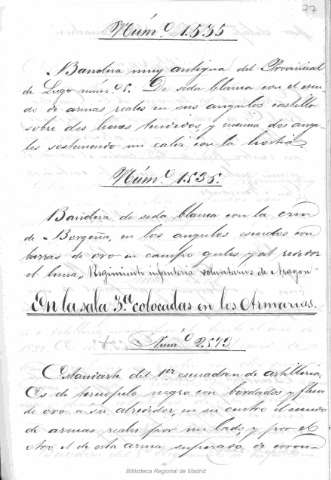 27
Núm.º 1.535
Bandera muy antigua del Provincial
de Lugo núm. 5. De seda blanca con el escu-
do de armas reales en sus angulos castillo
sobre dos leones tendidos y encima dos ange-
les sosteniendo un caliz con la hostia
Núm.º 1.525.
Bandera de seda blanca con la cruz
de Borgoña, en los angulos escudos con
barras de oro en campo gules y al rededor
el lema, Regimiento infanteria voluntarios de Aragon
En la sala 3.ª colocadas en los Armarios.
Núm.º 2.572
Estandarte del 1.er escuadron de artilleria,
Es de terciopelo negro con bordados y fleco
de oro a su alrededor, en su centro el escudo
de armas reales por un lado y por el
otro el de esta arma superado de corona
Biblioteca Regional de Madrid